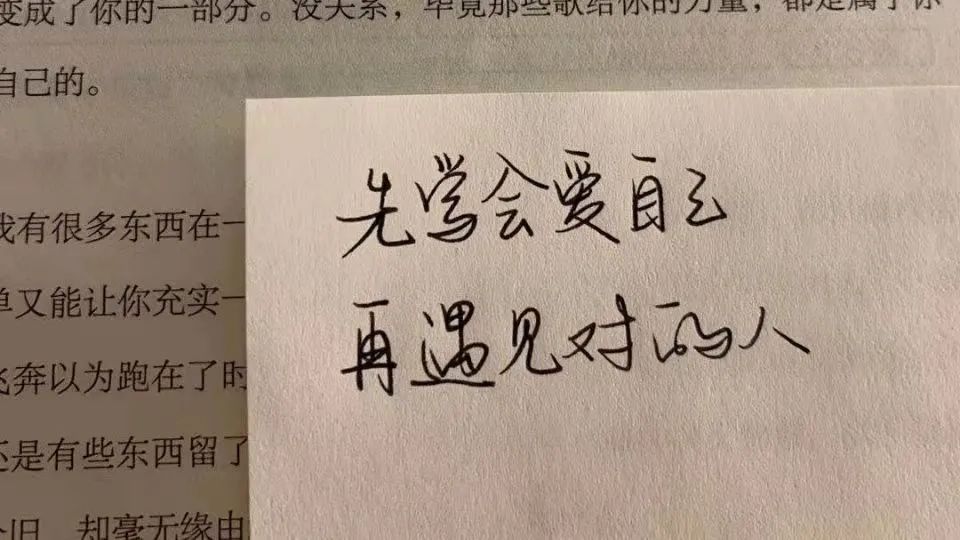 变成了你的一部分。没关系，毕竟那些歌给你的力量，都是属于你
自己的。
我有很多东西在一
单又能让你充实一
飞奔以为跑在了时
还是有些东西留了
却毫无缘由
先学会爱自己
再遇见对的人